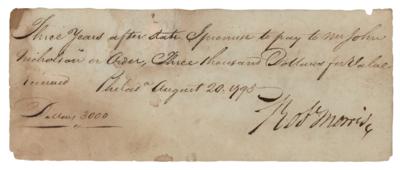 Three Years after date I promise to pay to Mr John
Nicholson or Order, Three thousand Dollars for Value
received Philada August 20. 1795
Robt Morris
Dollars, 3000